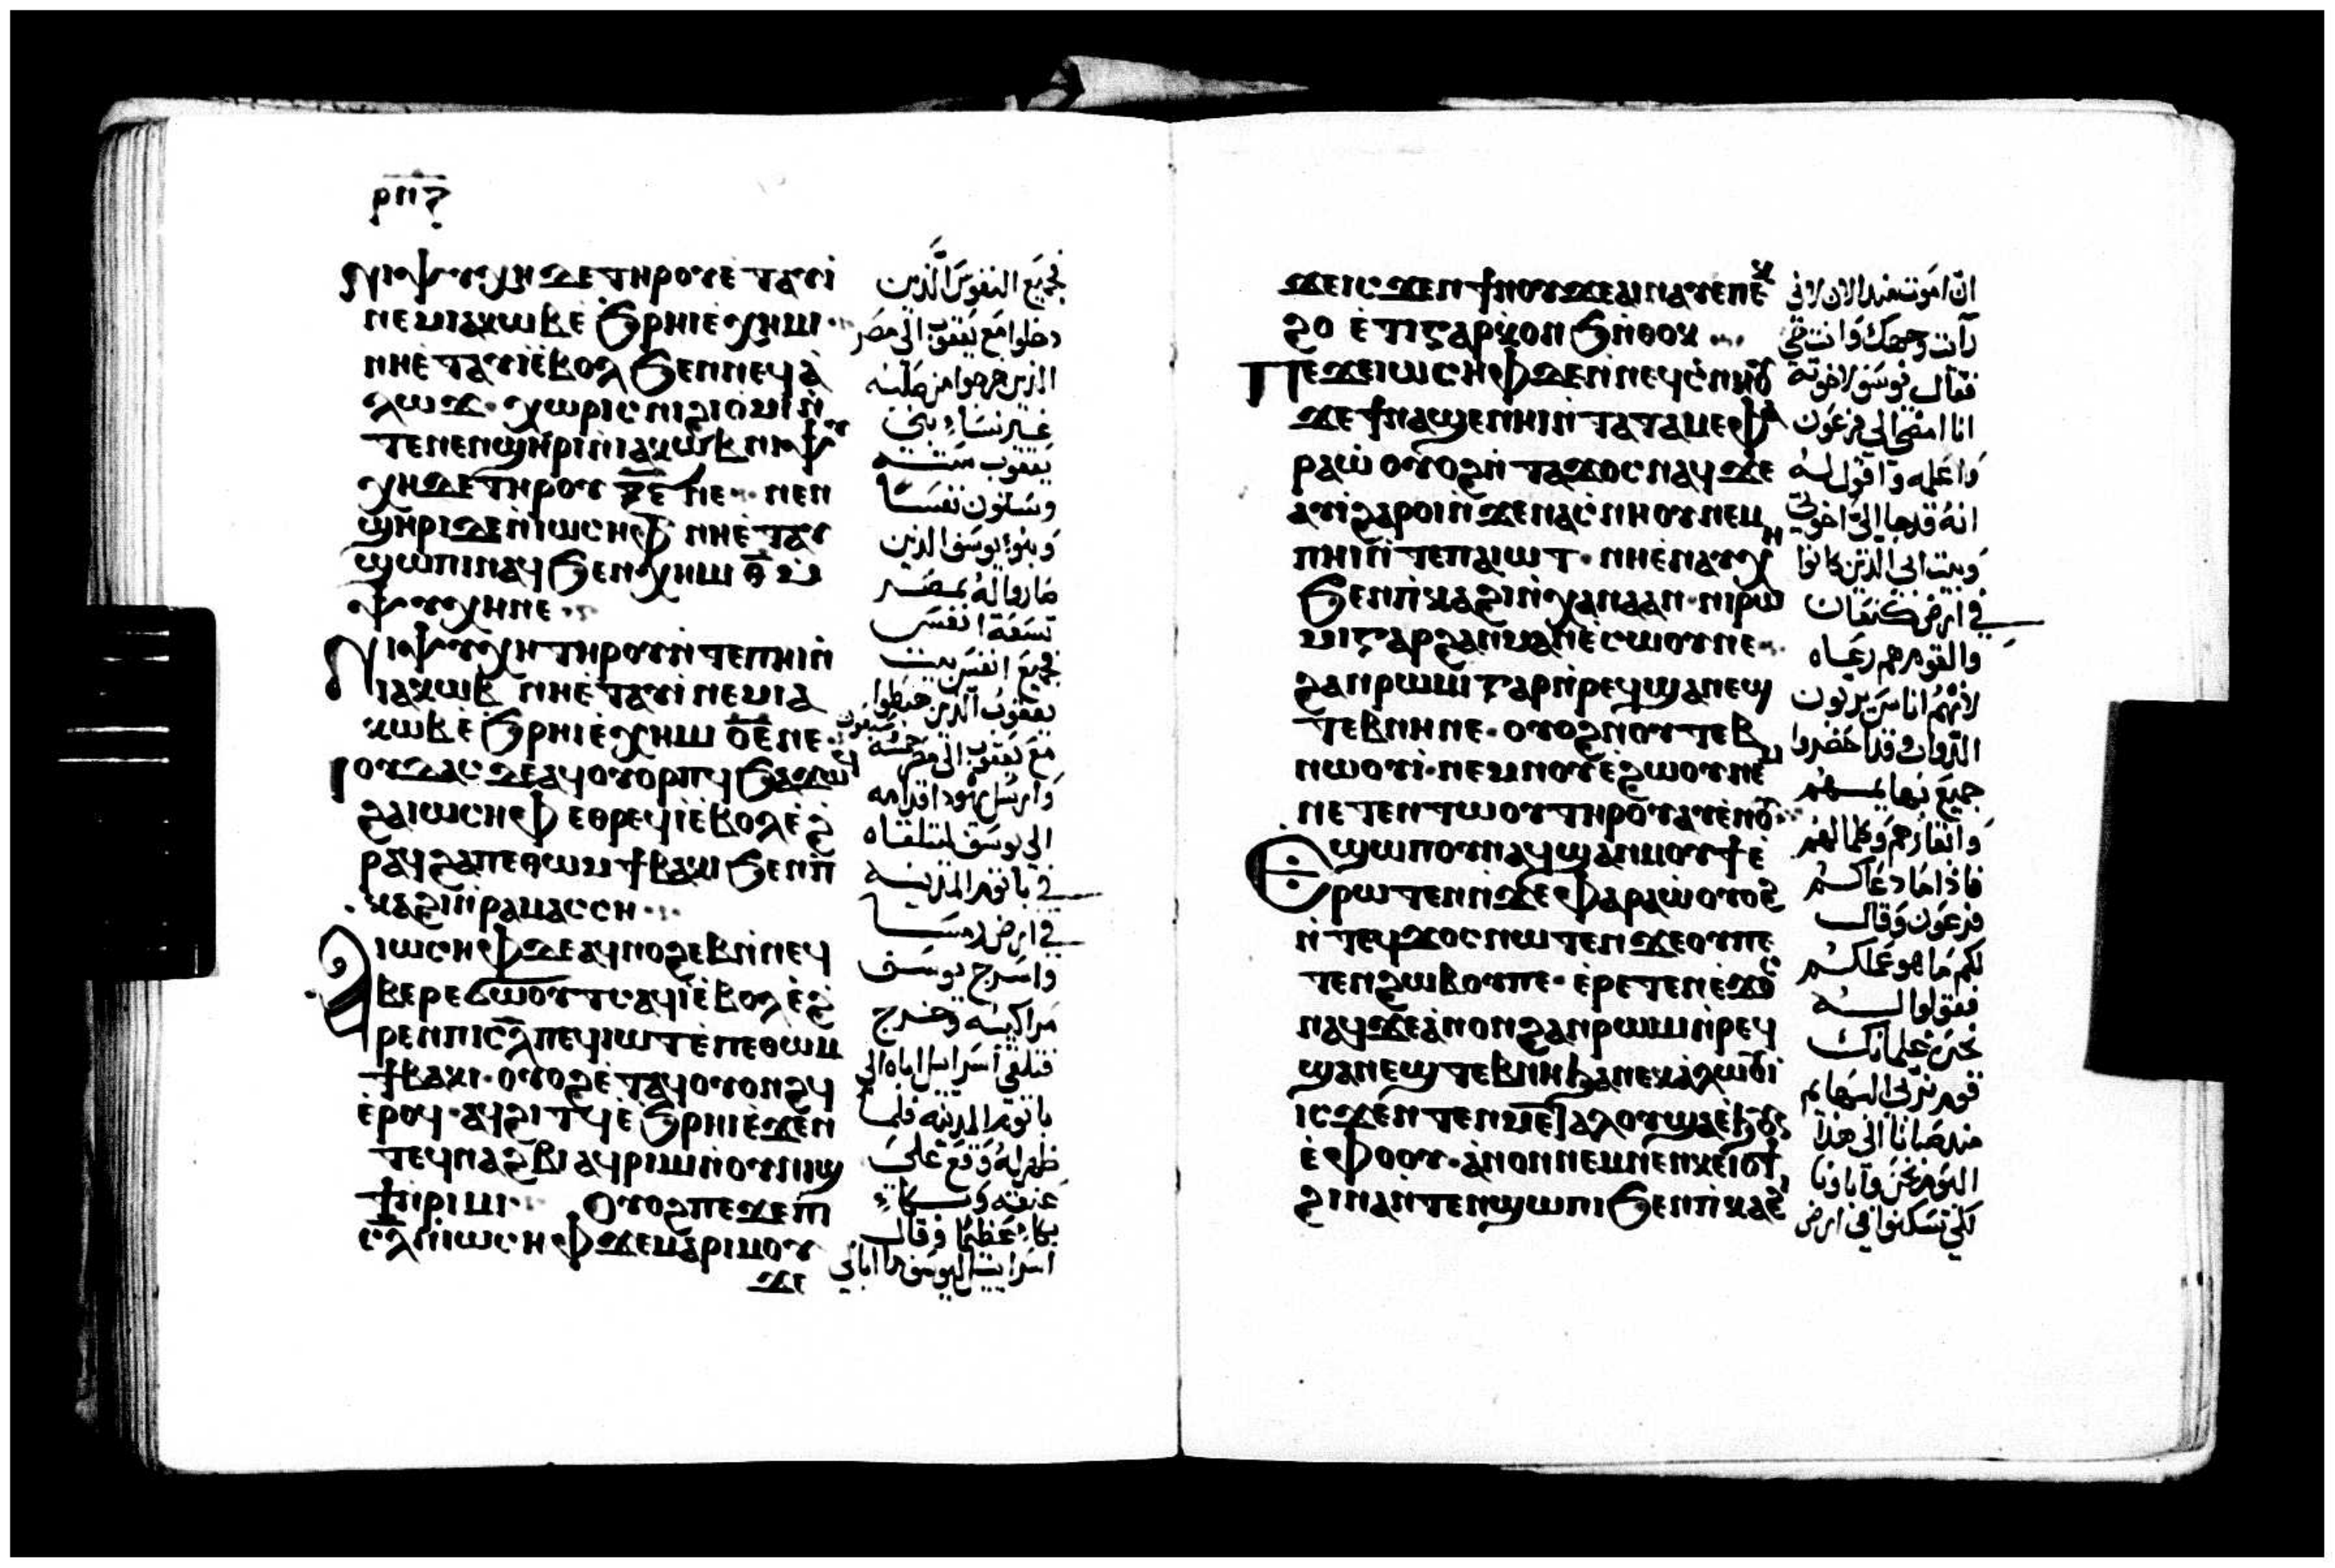 ⲣⲛⲍ
ⲛⲓⲯⲩⲭⲏ ⲇⲉ ⲧⲏⲣⲟⲩ ⲉ̀ⲧⲁⲩⲓ̀
ⲛⲉⲙⲓⲁⲕⲱⲃ ⲉ̀ϧⲣⲏⲓ ⲉ̀ⲭⲏⲙⲓ
ⲛⲏⲉ̀ⲧⲁⲩⲓ̀ⲉ̀ⲃⲟⲗ ϧⲉⲛⲛⲉϥⲁ̀
ⲗⲱϫ · ⲭⲱⲣⲓⲥ ⲛⲓϩⲓⲟ̀ⲙⲓ ⲛ̀
ⲧⲉⲛⲉⲛϣⲏⲣⲓ ⲛ̀ⲓⲁⲕⲱⲃ ⲛⲓⲯⲩ
ⲭⲏ ⲇⲉ ⲧⲏⲣⲟⲩ ⲝ̅ⲋ̅ ⲛⲉ · ⲛⲉⲛ
ϣⲏⲣⲓ ⲇⲉ ⲛ̀ⲓⲱⲥⲏⲫ ⲛⲏⲉ̀ⲧⲁⲩ
ϣⲱⲡⲓ ⲛⲁϥ ϧⲉⲛⲭⲏⲙⲓ ⲑ̅ ⲙ̀
ⲯⲩⲭⲏ ⲛⲉ
ⲛⲓⲯⲩⲭⲏ ⲧⲏⲣⲟⲩ ⲛ̀ⲧⲉⲡⲏⲓ ⲛ̀
ⲓⲁⲕⲱⲃ ⲛⲏⲉ̀ⲧⲁⲩⲓ̀ ⲛⲉⲙⲓⲁ
ⲕⲱⲃ ⲉ̀ϧⲣⲏⲓ ⲉ̀ⲭⲏⲙⲓ ⲟ̅ⲉ̅ ⲛⲉ
ⲓⲟⲩⲇⲁⲥ ⲇⲉ ⲁϥⲟⲩⲟⲣⲡϥ ϧⲁϫⲱϥ
ϩⲁⲓⲱⲥⲏⲫ ⲉⲑⲣⲉϥⲓ̀ⲉ̀ⲃⲟⲗ ⲉ̀ϩ
ⲣⲁϥ ϩⲁⲡⲉⲑⲱⲙ ϯⲃⲁⲕⲓ ϧⲉⲛⲡ
ⲕⲁϩⲓ ⲛ̀ⲣⲁⲙⲁⲥⲥⲏ
ⲓⲱⲥⲏⲫ ⲇⲉ ⲁϥⲛⲟϩⲉⲃ ⲛ̀ⲛⲉϥ
ⲃⲉⲣⲉϭⲱⲟⲩⲧⲥ ⲁϥⲓ̀ⲉ̀ⲃⲟⲗ ⲉ̀ϩ
ⲣⲉⲛ ⲡⲓⲥ̅ⲗ̅ ⲡⲉϥⲓⲱⲧ ⲉ̀ⲡⲉⲑⲱⲙ
ϯⲃⲁⲕⲓ · ⲟⲩⲟϩ ⲉ̀ⲧⲁϥⲟⲩⲟⲛϩϥ
ⲉ̀ⲣⲟϥ · ⲁϥϩⲓⲧϥ ⲉ̀ϧⲣⲏⲓ ⲉ̀ϫⲉⲛ
ⲧⲉϥⲛⲁϩⲃⲓ ⲁϥⲣⲓⲙⲓ ⲛ̀ⲟⲩⲛⲓϣ
ϯ ⲛ̀ⲣⲓⲙⲓ ⲟⲩⲟϩ ⲡⲉϫⲉ ⲡⲓ
ⲥ̅ⲗ̅ ⲛ̀ⲓⲱⲥⲏⲫ ϫⲉ ⲙⲁⲣⲓⲙⲟⲩ
ϫⲉ
فجميع النفوس الذين
دخلوا مع يعقوب الى مصر
الذين خرجوا من صلبه
غير نساء بني
يعقوب ستة
وستون نفسا
وبنو يوسف الذين
صاروا له بمصر
تسعة انفس
فجميع انفس بيت
يعقوب الذين هبطوا
مع يعقوب الى مصر خمسة وسبعون
وارسل يهودا قدامه
الى يوسف ليتلقاه
في باثوم المدينة
في ارض رمسا
واسرج يوسف
مراكبه وخرج
فتلقى اسرايل اباه الى
باثوم المدينه فلما
ظهر له وقع على
عنقه وبكا
بكاء عظيما وقال
اسراييل ليوسف
ϫⲉ ⲓⲥϫⲉⲛ ϯⲛⲟⲩ ϫⲉ ⲁⲓⲛⲁⲩ ⲉⲡⲉⲕ
ϩⲟ ⲉ̀ⲧⲓ ⲅⲁⲣ ⲕ̀ⲟⲛϧ ⲛ̀ⲑⲟⲕ
ⲡⲉϫⲉ ⲓⲱⲥⲏⲫ ϫⲉ ⲛ̀ⲛⲉϥⲥ̀ⲛⲏⲟⲩ
ϫⲉ ϯⲛⲁϣⲉⲛⲏⲓ ⲛ̀ⲧⲁⲧⲁⲙⲉ ⲫⲁ
ⲣⲁⲱ̀ ⲟⲩⲟϩ ⲛ̀ⲧⲁϫⲟⲥ ⲛⲁϥ ϫⲉ
ⲁⲩⲓ̀ ϩⲁⲣⲟⲓ ⲛ̀ϫⲉ ⲛⲁⲥ̀ⲛⲏⲟⲩ ⲛⲉⲙ
ⲡⲏⲓ ⲛ̀ⲧⲉⲡⲁⲓⲱⲧ · ⲛⲏⲉ̀ⲛⲁⲩⲭⲏ
ϧⲉⲛⲡ̀ⲕⲁϩⲓ ⲛ̀ⲭⲁⲛⲁⲁⲛ · ⲛⲓⲣⲱ
ⲙⲓ ⲅⲁⲣ ϩⲁⲛⲙⲁⲛⲉ̀ⲥⲱⲟⲩ ⲛⲉ
ϩⲁⲛⲣⲱⲙⲓ ⲅⲁⲣ ⲛ̀ⲣⲉϥϣⲁⲛⲉϣ
ⲧⲉⲃⲛⲏ ⲛⲉ · ⲟⲩⲟϩ ⲛⲟⲩⲧⲉⲃ
ⲛⲱⲟⲩⲓ · ⲛⲉⲙ ⲛⲟⲩⲉ̀ϩⲱⲟⲩ ⲛⲉⲙ
ⲛⲉⲧⲉⲛⲧⲱⲟⲩ ⲧⲏⲣⲟⲩ ⲁⲩⲉ̀ⲛⲟⲩ
ⲉϣⲱⲡ ⲟⲩⲛ ⲁϥϣⲁⲛⲙⲟⲩϯ ⲉ̀
ⲣⲱⲧⲉⲛ ⲛ̀ϫⲉ ⲫⲁⲣⲁⲱ̀ ⲟⲩⲟϩ
ⲛ̀ⲧⲉϥϫⲟⲥ ⲛⲱⲧⲉⲛ ϫⲉ ⲟⲩ ⲡⲉ
ⲧⲉⲛϩⲱⲃ ⲟⲩ ⲡⲉ · ⲉ̀ⲣⲉⲧⲉⲛⲉ̀ϫⲟⲥ
ⲛⲁϥ ϫⲉ ⲁ̀ⲛⲟⲛ ϩⲁⲛⲣⲱⲙⲓ ⲛ̀ⲣⲉϥ
ϣⲁⲛⲉϣ ⲧⲉⲃⲛⲏ ϧⲁ ⲛⲉⲕⲁ̀ⲗⲱⲟⲩⲓ̀
ⲓⲥϫⲉⲛ ⲧⲉⲛⲙⲉⲧⲁⲗⲟⲩ ϣⲁⲉ̀ϧⲟⲩⲛ
ⲉ̀ⲫⲟⲟⲩ · ⲁ̀ⲛⲟⲛ ⲛⲉⲙ ⲛⲉⲛⲕⲉⲓⲟϯ
ϩⲓⲛⲁ ⲛ̀ⲧⲉⲛϣⲱⲡⲓ ϧⲉⲛⲡ̀ⲕⲁϩⲓ
ان اموت منذ الان لاني
رات وجهك وانت حي
فقال يوسف لاخوته
انا امضي الى فرعون
واعلمه واقول له
انه قد جا الي اخوتي
وبيت ابي الذين كانوا
في ارض كنعان
والقوم هم رعاه
لانهم اناس يربون
الدواب وقد احضروا
جميع بهايمهم
وابقارهم وكلما لهم
فاذا ما دعاكم
فرعون وقال
لكم ما هو عملكم
فقولوا له
نحن غلمانك
قوم نربي البهايم
منذ صبانا الى هذا
اليوم نحن واباونا
لكي تسكنوا في ارض